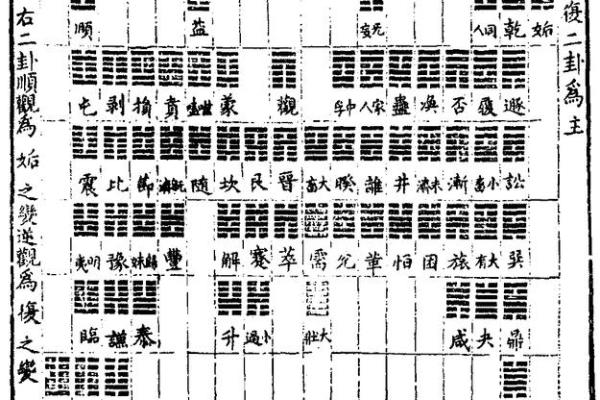 復二卦為主
姤 乾 同人 无妄 益 頤
遯 履 否 渙 蠱 家人 中孚 觀 蒙 噬嗑 賁 損 剝 屯
訟 小畜 漸 未濟 井 離 睽 大畜 晉 艮 坎 隨 既濟 節 比 震
巽 大有 旅 困 恒 革 兌 需 萃 蹇 解 豐 歸妹 豫 明夷
鼎 夬 咸 大壯 小過 升 泰 謙 臨
右二卦順觀為姤之變逆觀為復之變